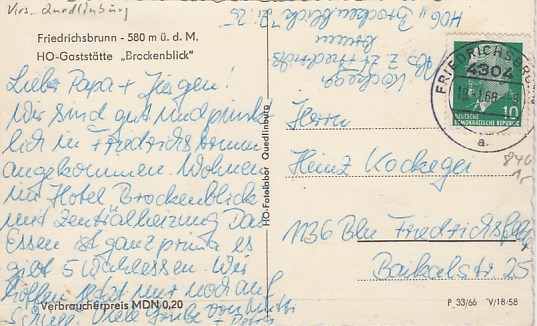 Vrs. Quedlinburg
Friedrichsbrunn - 580 m ü. d. M.
HO-Gaststätte „Brockenblick"
Liebe Papa + Jürgen!
Wir sind gut und pünkt
lich in Friedrichsbrunn
angekommen. Wohnen
im Hotel Brockenblick
mit Zentralheizung Das
Essen ist ganz prima es
gibt 5 Wahlessen. Wir
hoffen jetzt nur noch auf
Schnee. Viele Grüße von Mutti
+ Petra
Verbraucherpreis MDN 0,20
HO-Fotolabor Quedlinburg
Abs. Kockegei
z. Zt Friedrichs
brunn
HOG „Brockenblick" Zi. 25
FRIEDRICHSBRUNN
4304
1.68
a
10
DEUTSCHE
DEMOKRATISCHE REPUBLIK
Herrn
Heinz Kockegei
846
1136 Bln Friedrichsfelde
Baikalstr 25
P 33/66 V/18/58